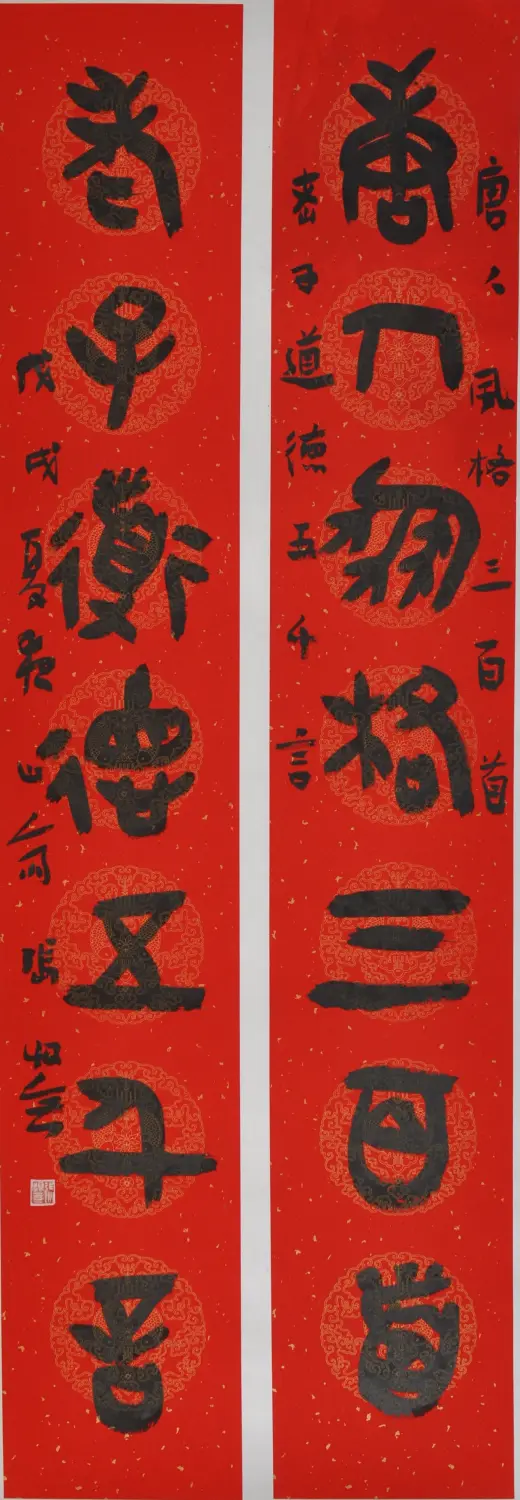 唐人風格三百首
唐人風格三百首
老子道德五千言
老子道德五千言
戊戌夏
張